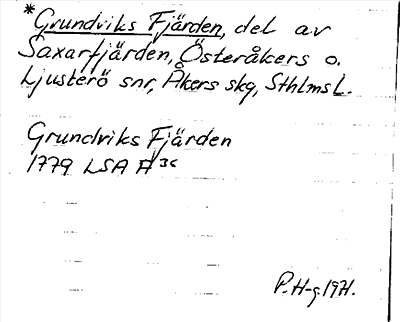 *Grundviks Fjärden, del av
Saxarfjärden, Österåkers o.
Ljusterö snr, Åkers skg, Sthlms L.
Grundviks Fjärden
1779 LSA A 36
P. H-g. 1971.